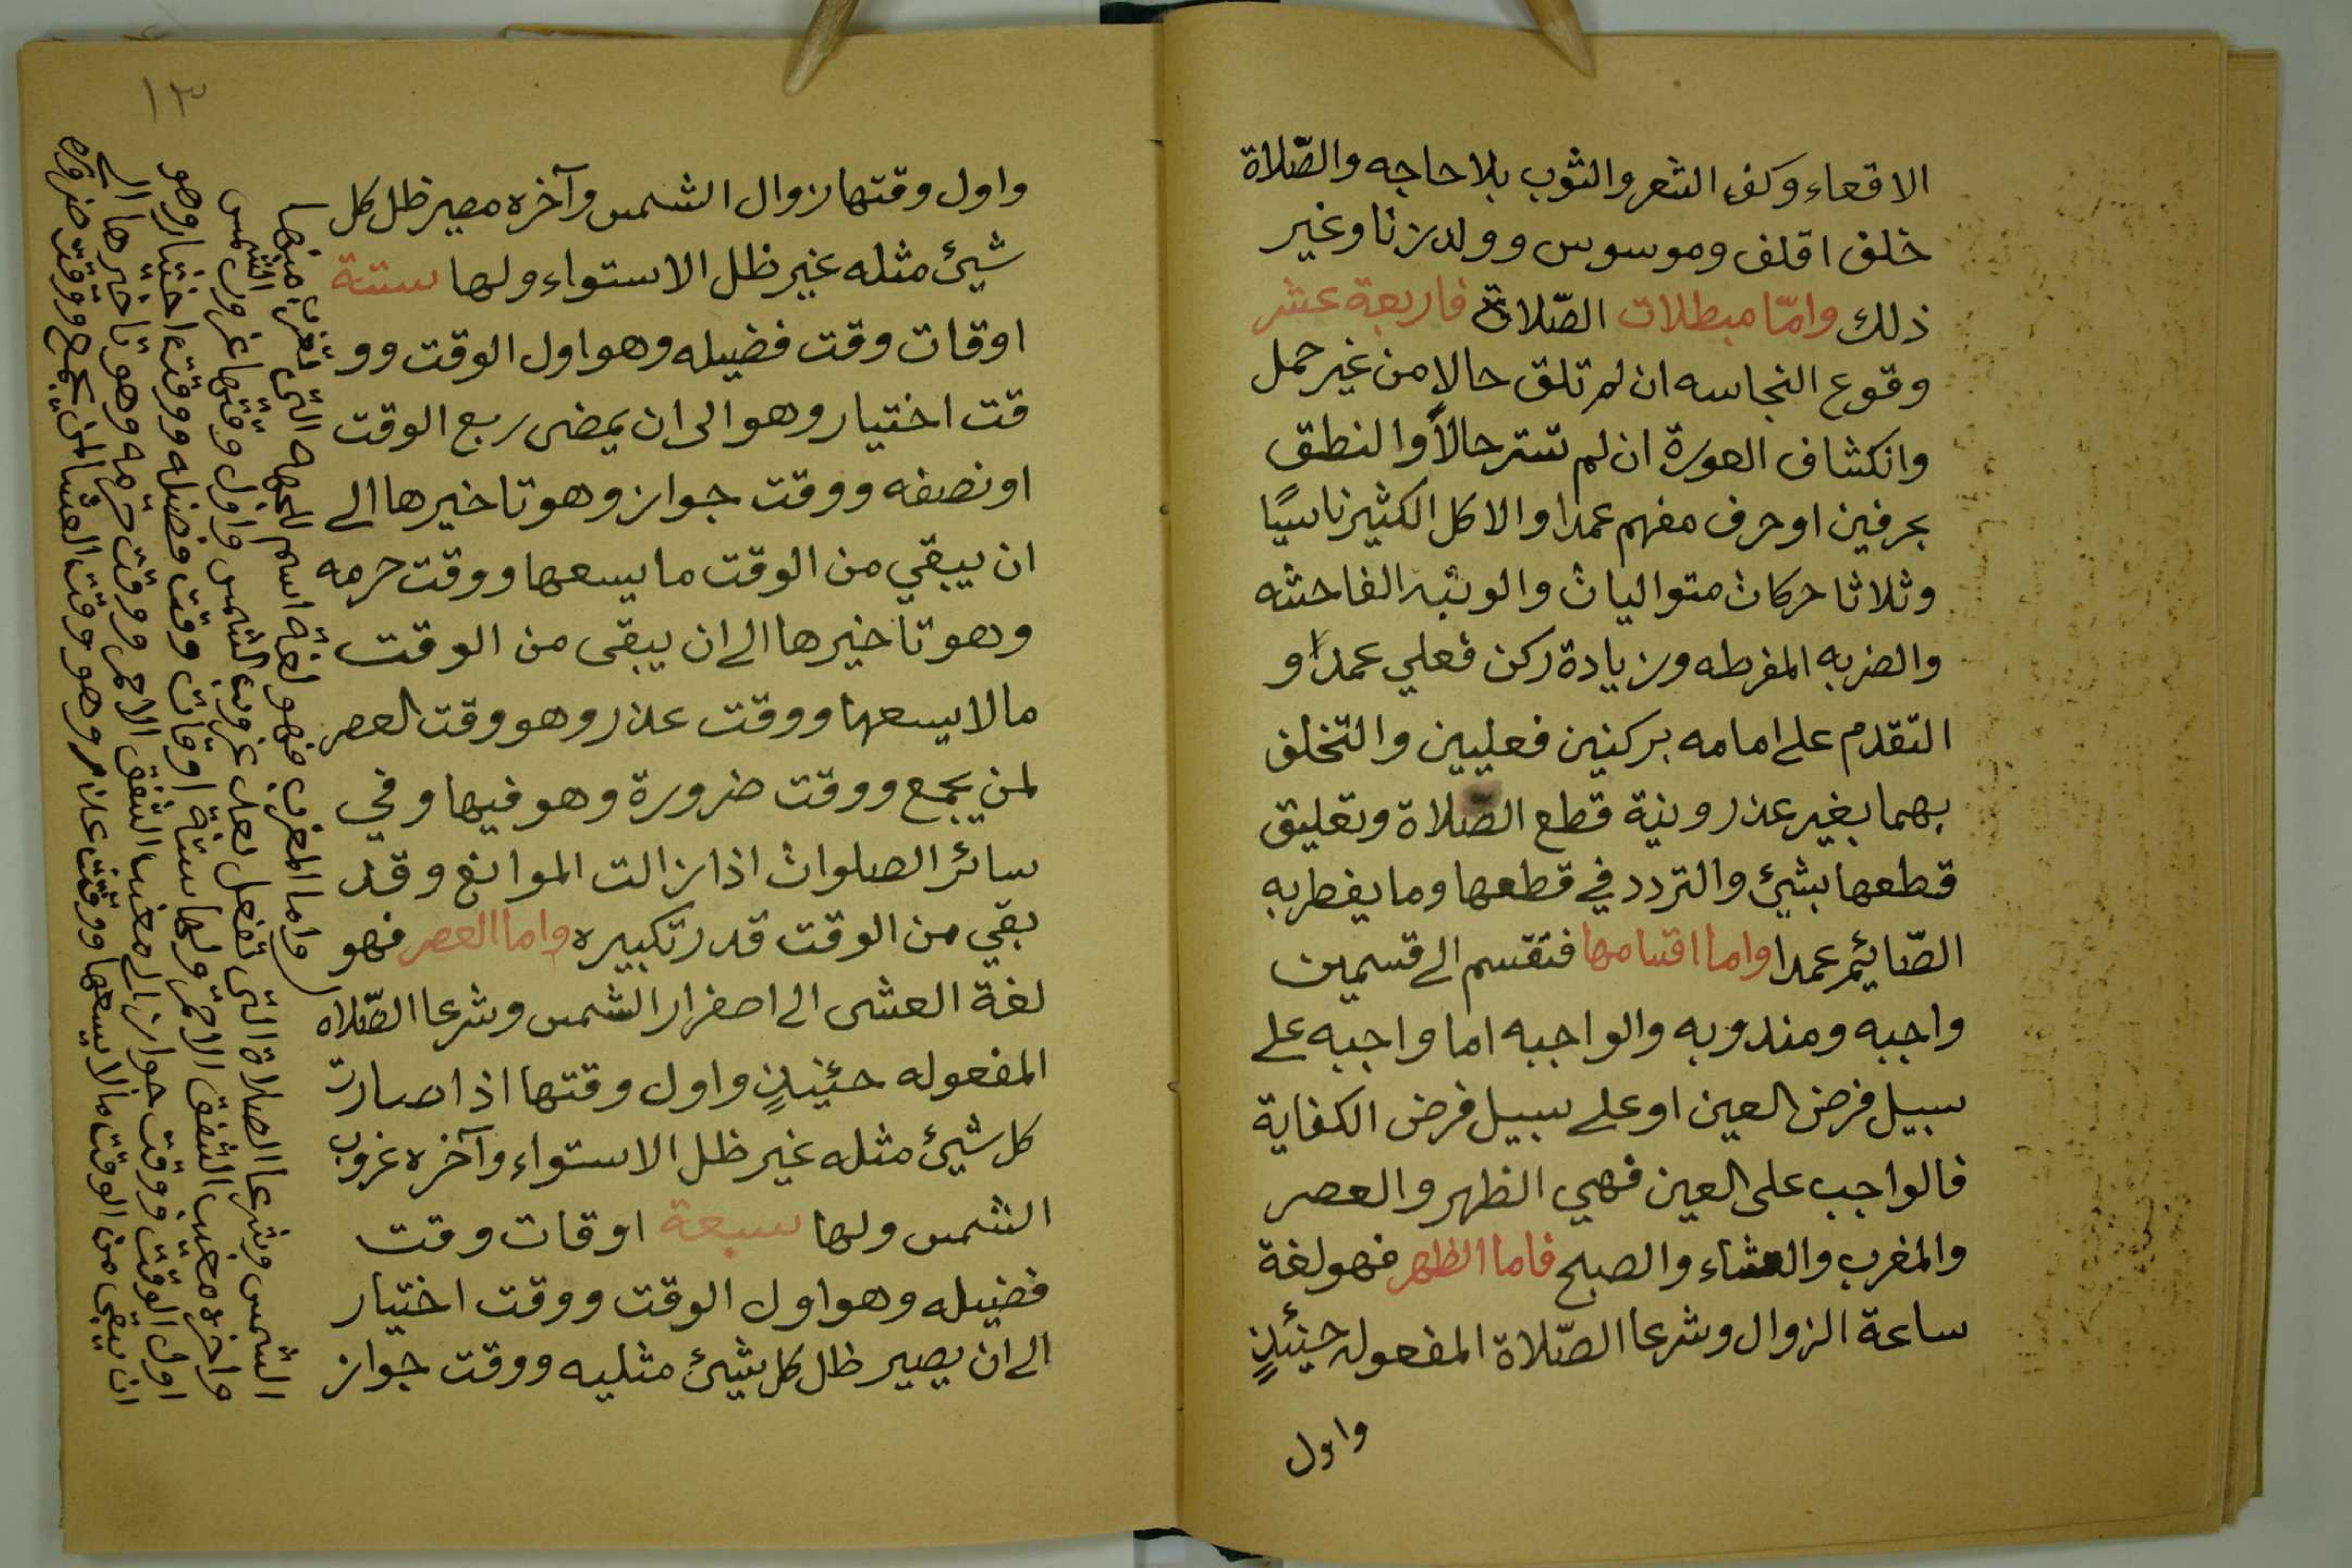 الاقعاء وكف الشعر والثوب بلا حاجه والصّلاة
خلف اقلف وموسوس وولد زنا وغير
ذلك وامّا مبطلات الصّلاة فاربعة عشر
وقوع النجاسه ان لم تلق حالا من غير حمل
وانكشاف العورة ان لم تستر حالاً والنطق
بحرفين او حرف مفهم عمدا والاكل الكثير ناسيًا
وثلاثا حركات متواليات والوثبه الفاحشه
والضربه المفرطه وزيادة ركن فعلي عمدًا و
التقدم على امامه بركنين فعليين والتخلف
بهما بغير عذر ونية قطع الصّلاة وتعليق
قطعها بشيئ والتردد في قطعها وما يفطر به
الصّايئم عمدا واما اقسامها فتقسم الى قسمين
واجبه ومندوبه والواجبه اما واجبه على
سبيل فرض العين او على سبيل فرض الكفاية
فالواجب على العين فهي الظهر والعصر
والمغرب والعشاء والصبح فاما الظهر فهو لغة
ساعة الزوال وشرعا الصّلاة المفعوله حينئذٍ
واول
١٣
واول وقتها زوال الشمس وآخره مصير ظل كل
شيئ مثله غير ظل الاستواء ولها ستة
اوقات وقت فضيله وهو اول الوقت وو
قت اختيار وهو الى ان يمضى ربع الوقت
او نصفه ووقت جواز وهو تاخيرها الى
ان يبقي من الوقت ما يسعها ووقت حرمه
وهو تاخيرها الى ان يبقى من الوقت
ما لا يسعها ووقت عذر وهو وقت العصر
لمن يجمع ووقت ضرورة وهو فيها وفي
سائر الصلوات اذا زالت الموانع وقد
بقي من الوقت قدر تكبيره واما العصر فهو
لغة العشى الى اصفرار الشمس وشرعا الصّلاه
المفعوله حئينذٍ واول وقتها اذا صارت
كل شيئ مثله غير ظل الاستواء وآخره غروب
الشمس ولها سبعة اوقات وقت
فضيله وهو اول الوقت ووقت اختيار
الى ان يصير ظل كل شيئ مثليه ووقت جواز
واما المغرب فهو لغة اسم للجهه التى تغرب منها
الشمس وشرعا الصلاة التى تفعل بعد غروب الشمس واول وقتها غروب الشمس
واخره مغيب الشفق الاحمر ولها ستة اوقات وقت فضيله ووقت اختيار وهو
اول الوقت ووقت جواز الى مغيب الشفق الاحمر ووقت حرمه وهو تاخيرها الى
ان يبقى من الوقت ما لا يسعها ووقت عذر وهو وقت العشا لمن يجمع ووقت ضروره